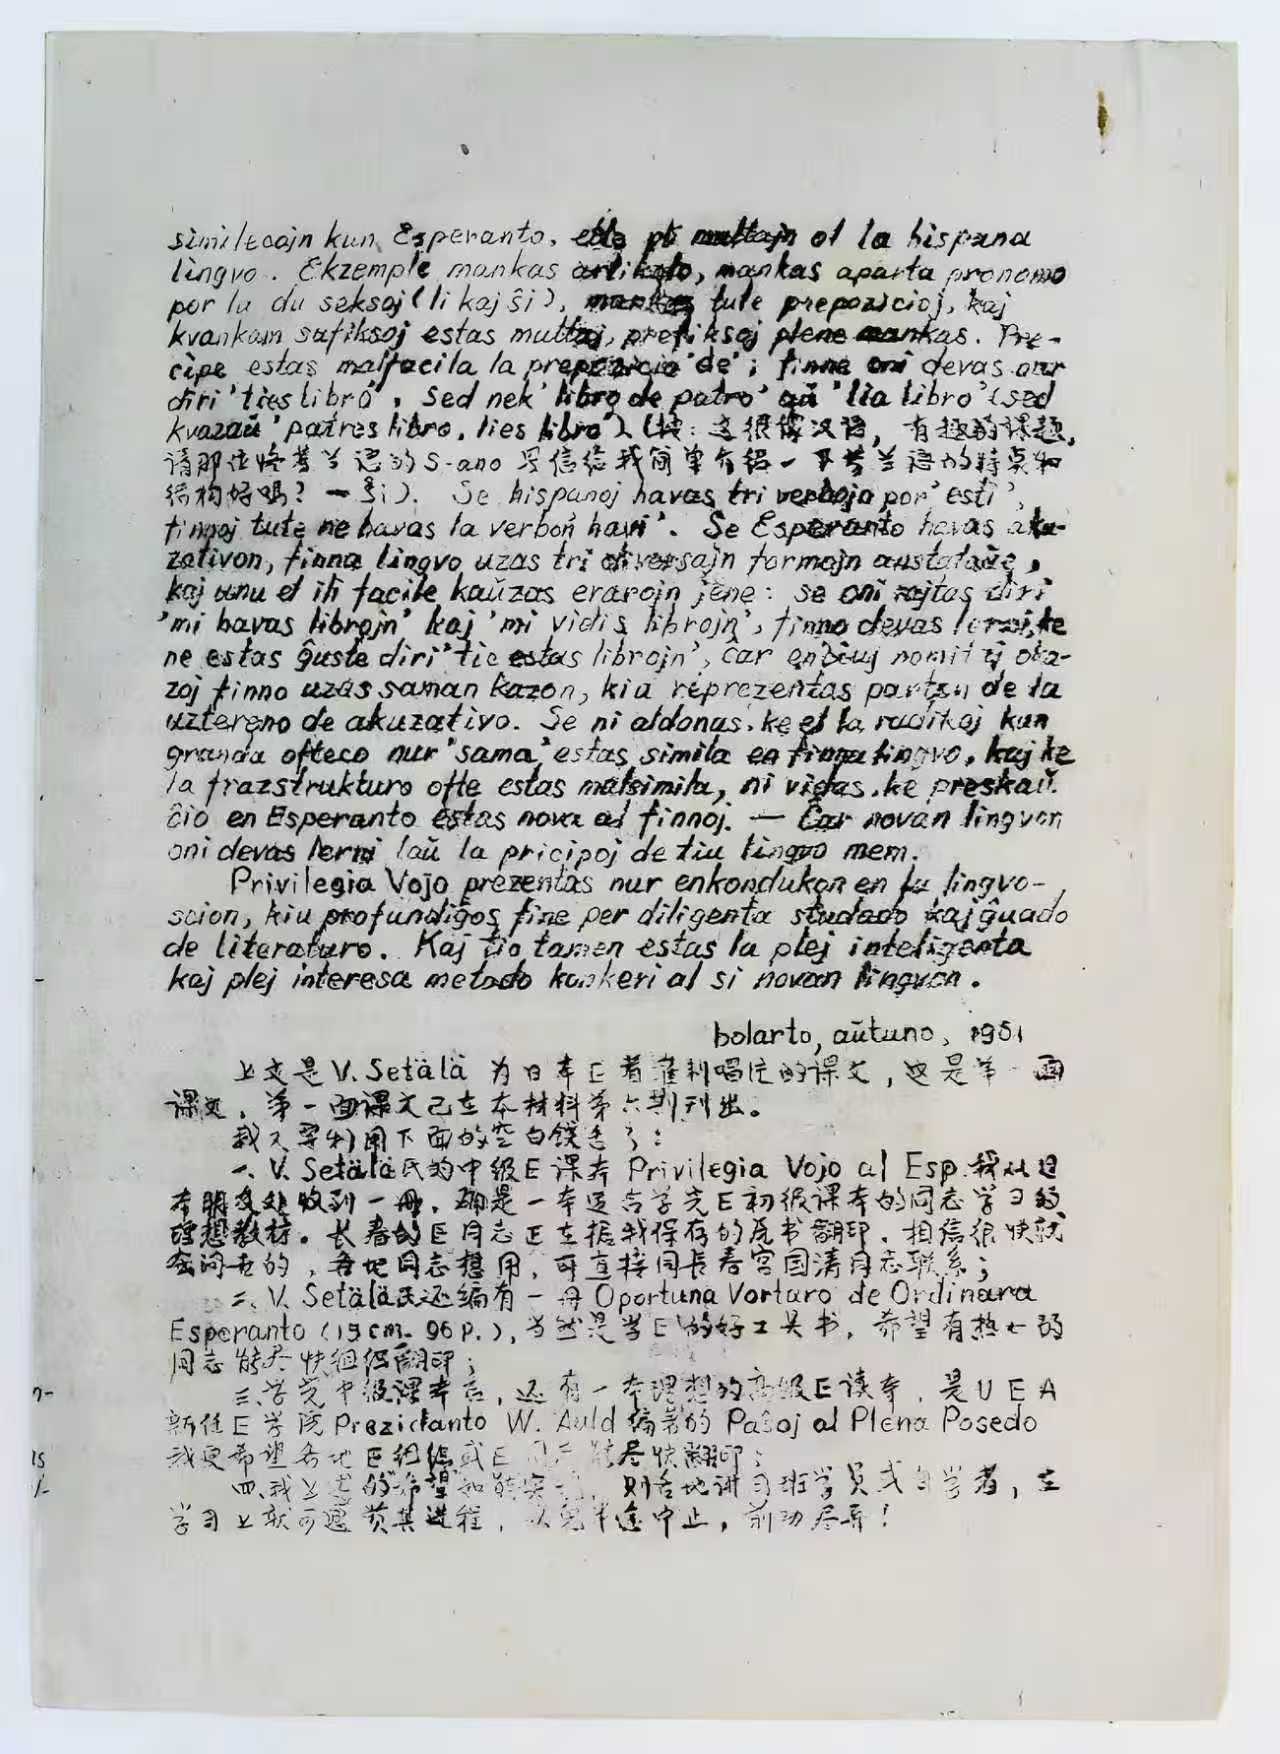 similecojn kun Esperanto, ol la hispana
lingvo. Ekzemple mankas artikolo, mankas aparta pronomo
por la du seksoj (li kaj ŝi), mankas tute prepozicioj, kaj
kvankam sufiksoj estas multaj, prefiksoj plene mankas. Pre-
cipe estas malfacila la prepozicio 'de'; finne oni devas nur
diri 'ties libro', sed nek 'libro de patro' aŭ 'lia libro' (sed
kvazaŭ 'patres libro, lies libro') (按:这很像汉语,有趣的课题,
请那位修芬兰语的 S-ano 写信给我简单介绍一下芬兰语的特点和
结构好吗? — Ŝi). Se hispanoj havas tri verbojn por 'esti',
finnoj tute ne havas la verbon 'havi'. Se Esperanto havas aku-
zativon, finna lingvo uzas tri diversajn formojn anstataŭe,
kaj unu el ili facile kaŭzas erarojn jene: se oni rajtas diri
'mi havas librojn' kaj 'mi vidis librojn', finno devas lerni, ke
ne estas ĝuste diri 'tie estas librojn', ĉar en ĉiuj nomitaj oka-
zoj finno uzas saman kazon, kiu reprezentas parton de la
uztereno de akuzativo. Se ni aldonas, ke el la radikoj kun
granda ofteco nur 'sama' estas simila en finna lingvo, kaj ke
la frazstrukturo ofte estas malsimila, ni vidas, ke preskaŭ
ĉio en Esperanto estas nova al finnoj. — Ĉar novan lingvon
oni devas lerni laŭ la pricipoj de tiu lingvo mem.
Privilegia Vojo prezentas nur enkondukon en la lingvo-
scion, kiu profundiĝos fine per diligenta studado kaj ĝuado
de literaturo. Kaj tio tamen estas la plej inteligenta
kaj plej interesa metodo konkeri al si novan lingvon.
bolarto, aŭtuno, 1981
上文是 V. Setälä 为日本E者 的课文,这是第 面
课文,第一面课文已在本材料第六期刊出。
我又要利用下面的空白饶舌了:
一、V. Setälä氏的中级E课本 Privilegia Vojo al Esp. 我从日
本朋友处收到一册,确是一本适合学完E初级课本的同志学习的
理想教材。长春的E同志正在据我保存的原书翻印,相信很快就
会问世的,各地同志想用,可直接同长春宫国清同志联系;
二、V. Setälä氏还编有一册 Oportuna Vortaro de Ordinara
Esperanto (19 cm. 96 p.),当然是学E的好工具书,希望有热心的
同志能尽快组织翻印;
三、学完中级课本后,还有一本理想的高级E读本,是UEA
新任E学院 Prezidanto W. Auld 编著的 Paŝoj al Plena Posedo
我更希望各地E组织或E同志能尽快翻印;
四、我上述的希望如能实 ,则各地讲习班学员或自学者,在
学习上就可 其进程,以免半途中止,前功尽弃!